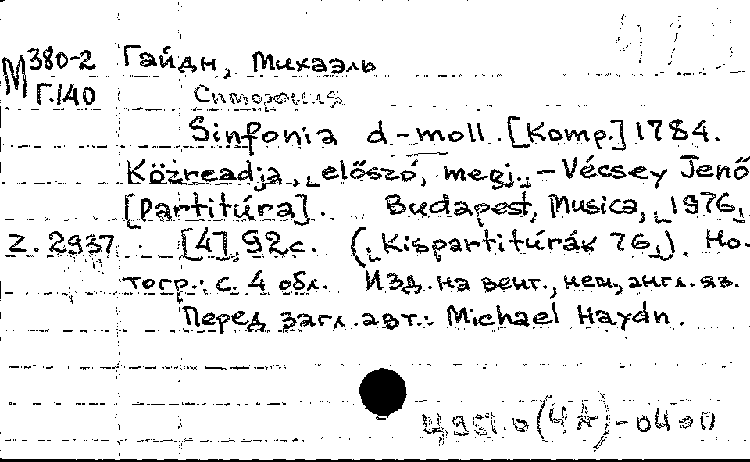 М 380-2 Гайдн, Михаэль
Г.140 Симфония
Sinfonia d-moll. [Komp.] 1784.
Közreadja, ⌞előszó, megj.⌟ – Vécsey Jenő
[Partitúra]. Budapest, Musica, ⌞1976⌟
Z. 2937 [4], 92 с. (⌞Kispartitúrák 76⌟). Но-
тогр.: с. 4 обл. Изд. на венг., нем., англ. яз.
Перед загл. авт.: Michael Haydn.